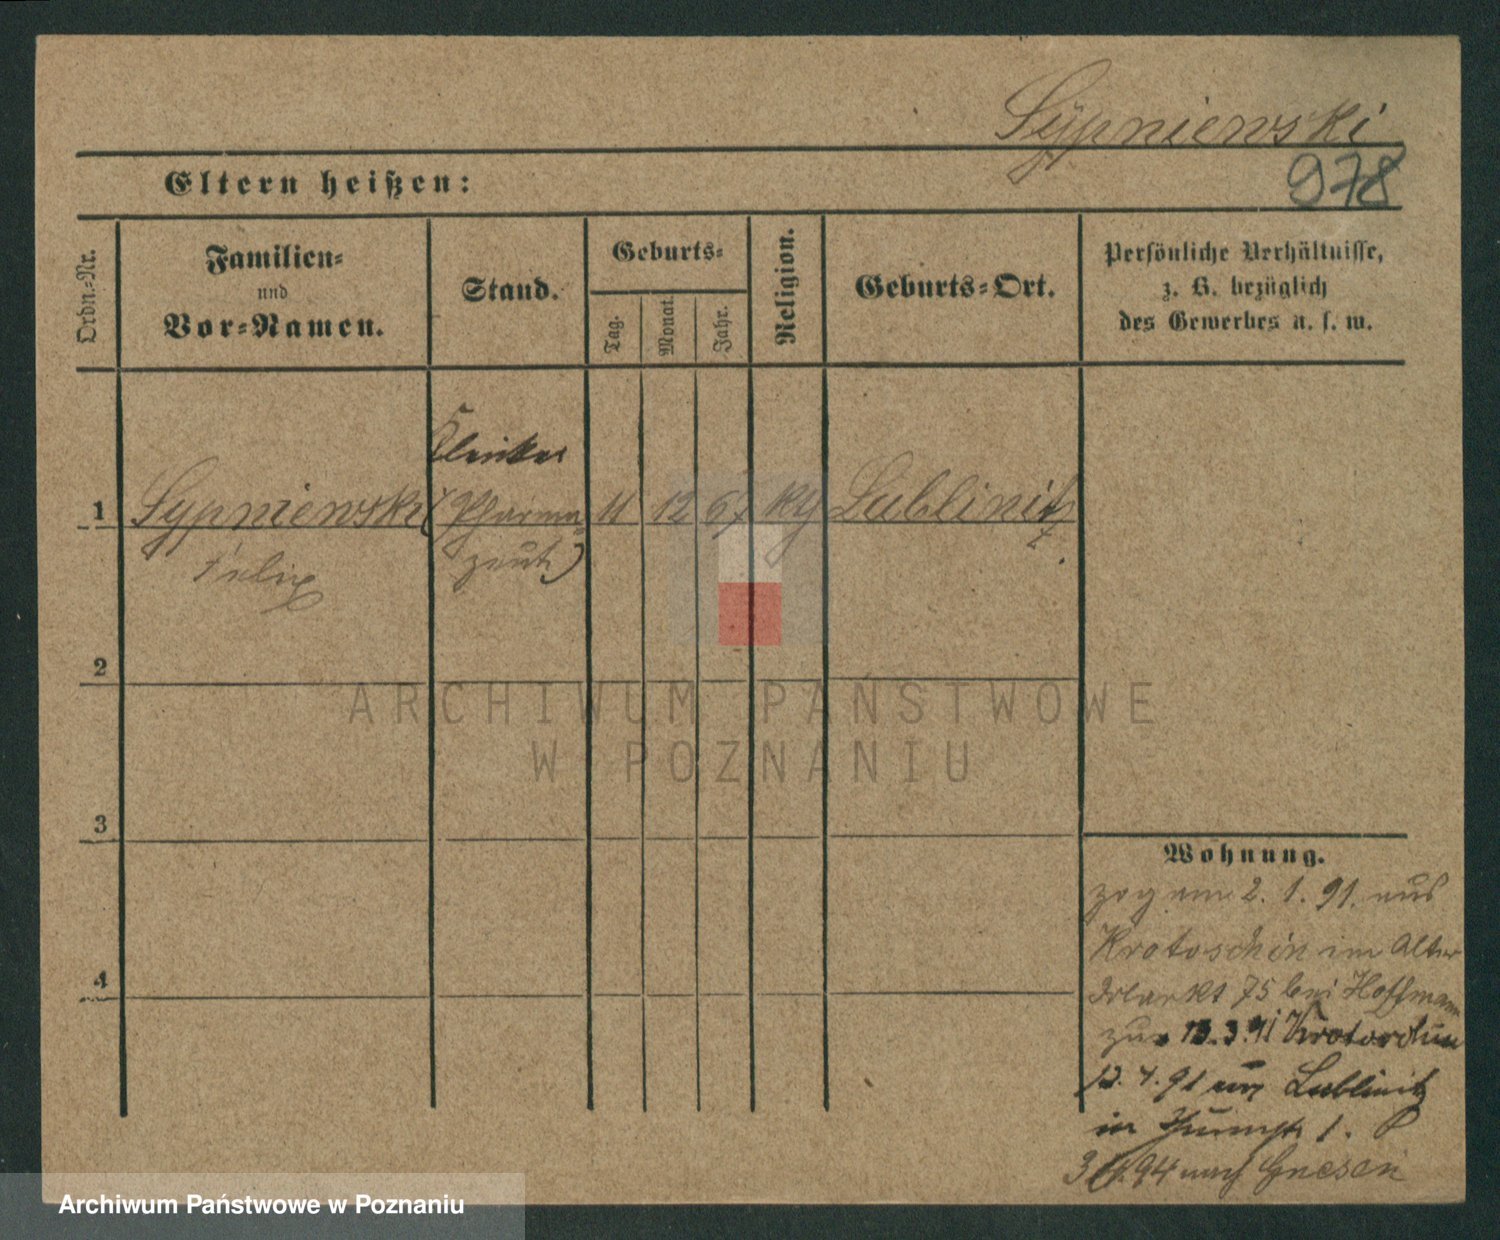 Sypniewski
978
Eltern heißen:
Ordn.-Nr.
Familien-
und
Vor-Namen.
Stand.
Geburts-
Tag.
Monat.
Jahr.
Religion.
Geburts-Ort.
Persönliche Verhältnisse,
z. B. bezüglich
des Gewerbes u. s. w.
1
Sypniewski
Felix
(Pharma-
zeut)
11
12
67
Lublinitz
2
3
4
Wohnung.
zog am 2. 1. 91. aus
Krotoschin im Alter
Markt 75 bei Hoffmann
13.3.91 Krotoschin
13. 4. 91 Lublinitz
in
94 nach Gnesen
ARCHIWUM PAŃSTWOWE
W POZNANIU
Archiwum Państwowe w Poznaniu